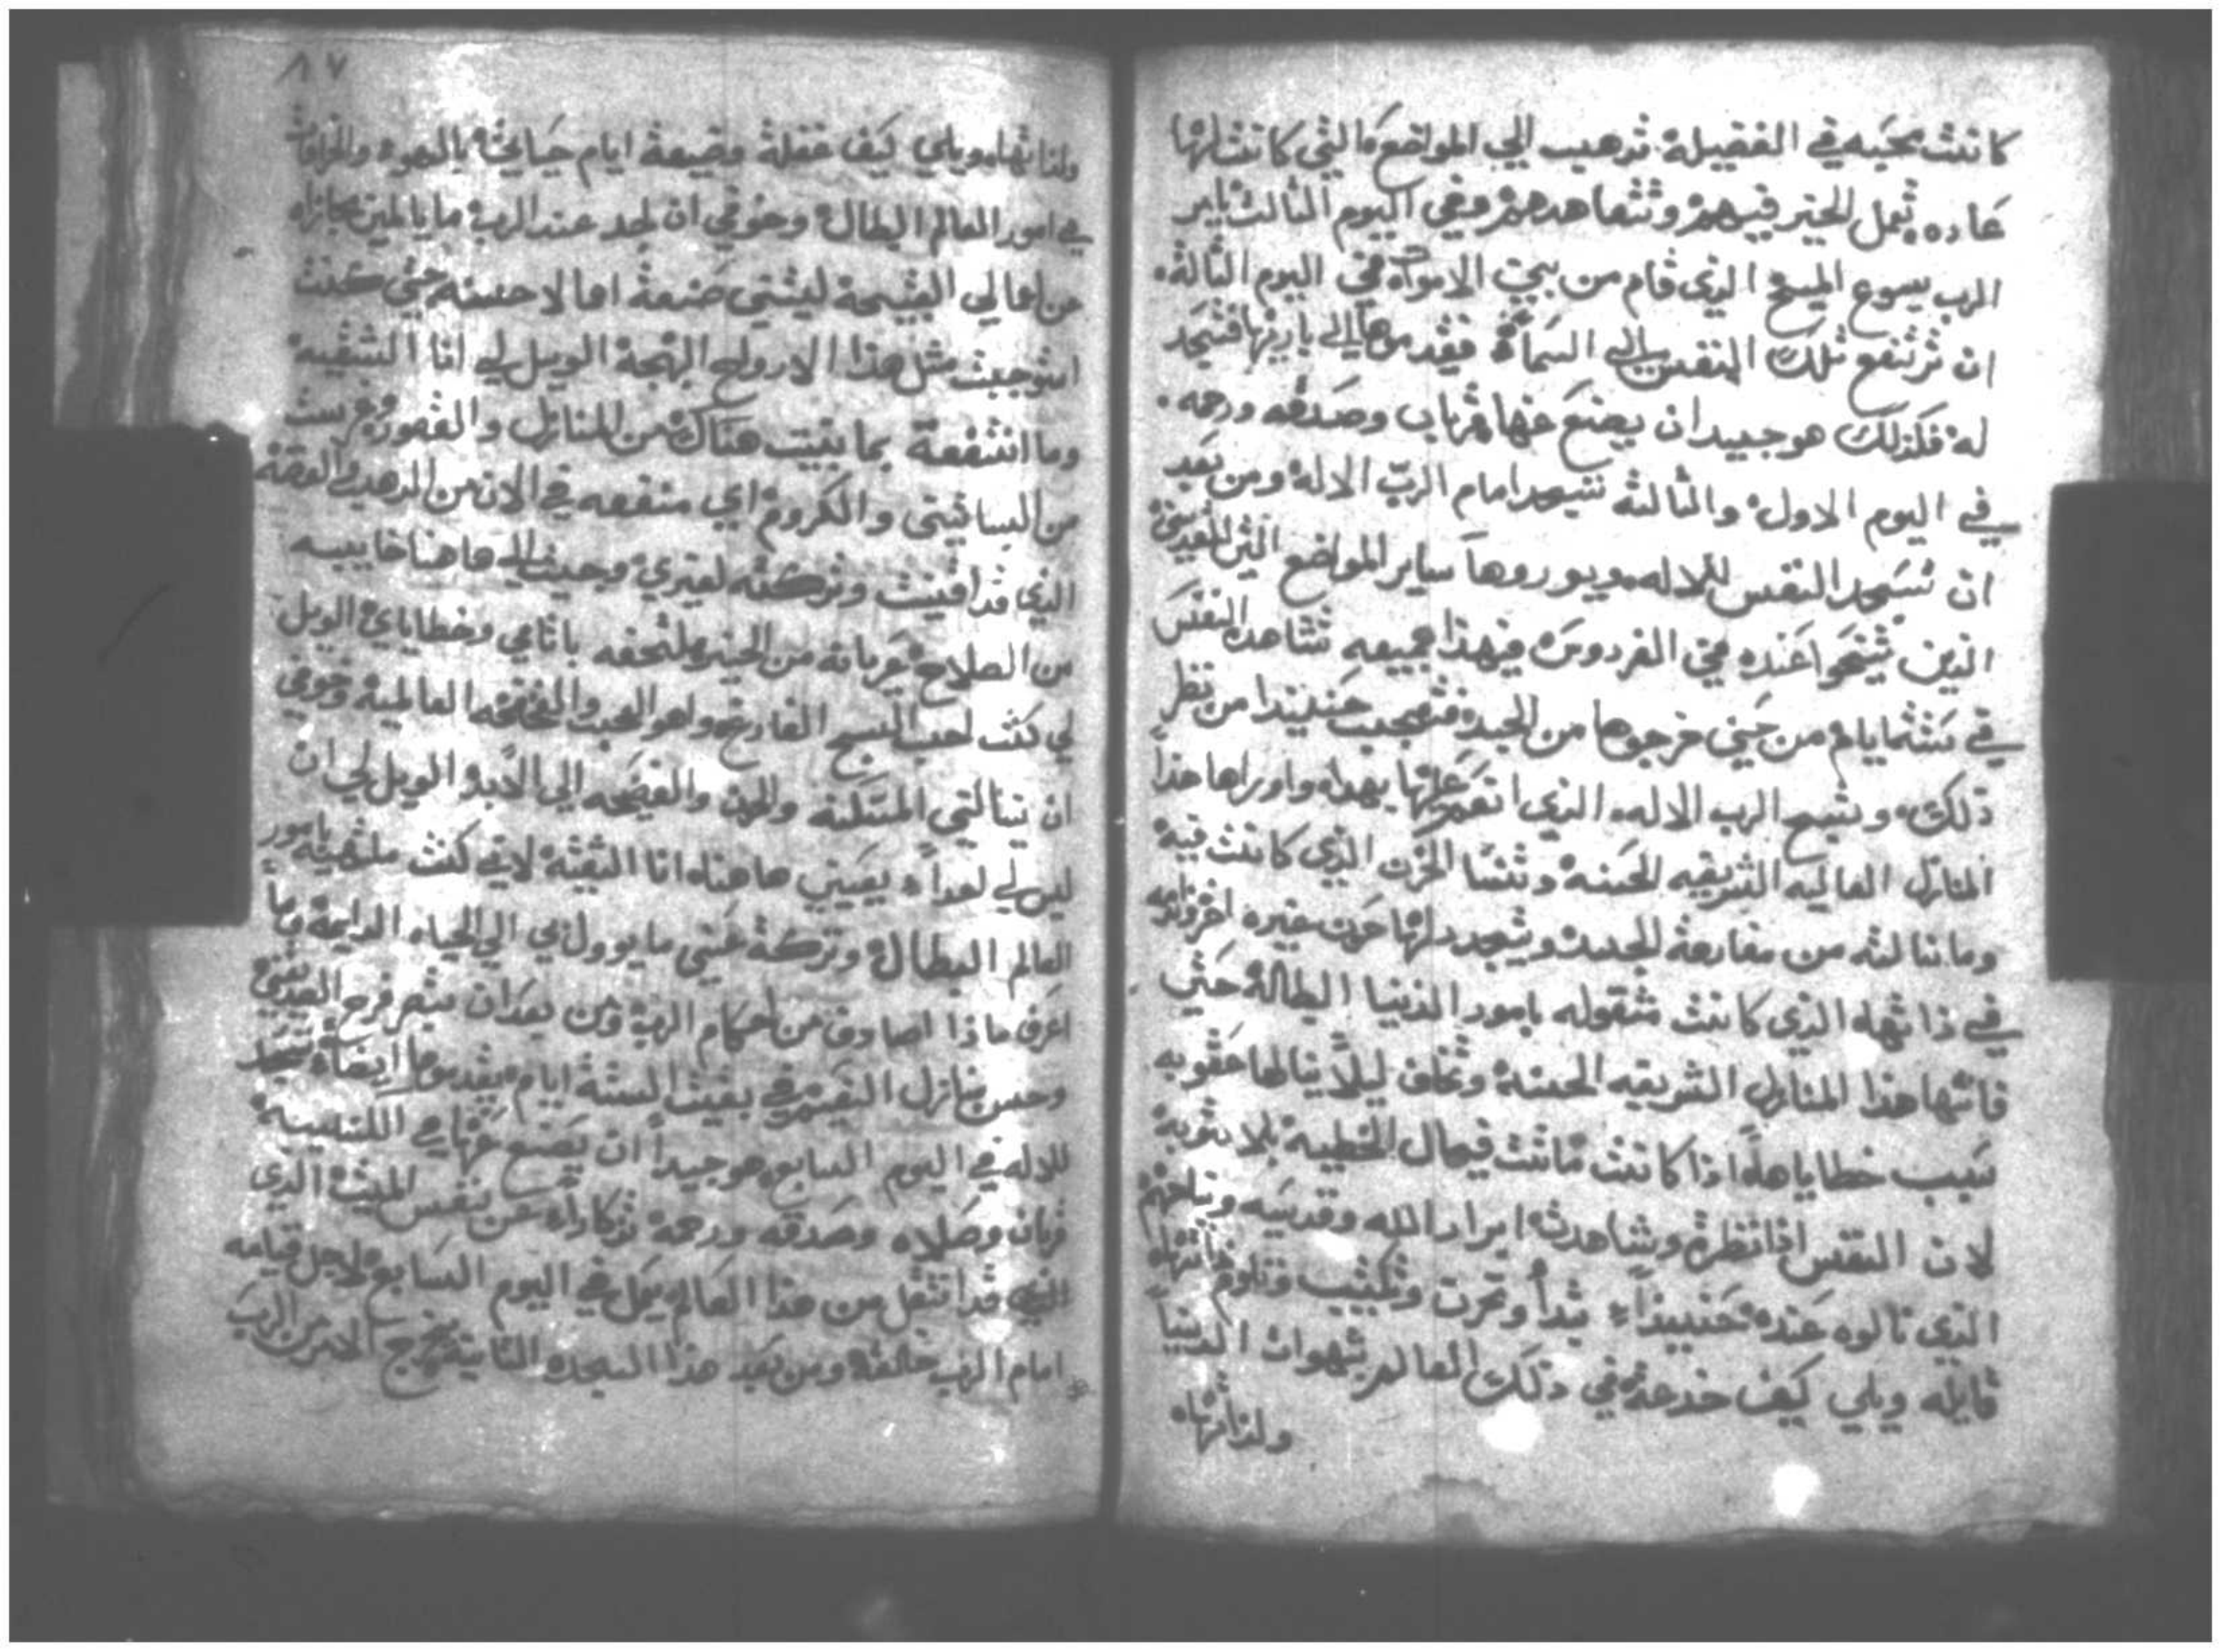 كانت محبه في الفضيله تدهب الي المواضع التي كانت لها
عاده تعمل الخير فيهم وتتعاهدهم وفي اليوم الثالت يامر
الرب يسوع المسيح الذي قام من بين الاموات في اليوم الثالة
ان ترتفع تلك النفس الي السما الي باريها فتسجد
له فكذلك هو جيد ان يصنع عنها قربان وصدقه ورحمه
في اليوم الاول والثالثة تسجد امام الرب الاله ومن بعد
ان تسجد النفس للاله ويوروها ساير المواضع
الذين تنيحوا عنده في الفردوس فهذا جميعه تشاهده النفس
في ستت ايام من حين خرجوها من الجسد فتعجب حنيندا من نظر
ذلك وتسبح الرب الاله الذي انعم عليها بهدا واوراها هذا
المنازل العاليه الشريفه الحسنة وتنسا الحزن الذي كانت فيه
وما نالته من مفارقة الجسد ويتجدد لها حزن غيره اخر
في ذاتها الذي كانت متقوله بامور الدنيا البطالة حتي
فاتها هذا المنازل الشريفه الحسنة وتخاف ليلا ينالها عقوبه
سبب خطاياها اذا كانت ماتت في حال الخطية بلا توبة
لان النفس اذا نظرة وشاهدت ابرار الله وقديسه ونياحهم
الذي نالوه عنده حنييذا تبدأ وتحزن وتكتيب وتلوم ذاتها
قايله ويلي كيف خدعة في ذلك العالم بشهوات الدنيا
ولذاتها
٨٧
ولذاتها ويلي كيف غفلة وضيعة ايام حياتي بالسهوه
في امور العالم البطال وخوفي ان لجد عند الرب ما يا
عن افعالي القبيحة ليتني صنعة افعالا حسنه حتي كنت
استوجبت مثل هذا الارواح البهجة الويل لي انا الشقيه
وما انتفعة بما بنيت هناك من المنازل والقصور وغرست
من البساتيني والكروم اي منفعه في الان من الدهب والفضة
الذي قد اقنيت وتركته لغيري وجيت الي هاهنا خاييبه
من الصلاح عريانه من الخير ملتحفه باثامي وخطاياي الويل
لي كنت احب المسبح الفارغ العالمية وخوفي
ان ينالني المسكنه والحزن والفضيحه الي الابد الويل لي ان
ليس لي احدا يعينني هاهناه انا الشقية لاني كنت ملتهيه بامور
العالم البطال وتركة عني ما يوول بي الي الحياه الدايمة وما
اعرف ماذا اصادف من احكام الرب ومن بعد ان تبصر فرح الصديقين
وحسن منازل النعيم في بقيت الستة ايام يقدموها ايضا تسجد
للاله في اليوم السابع هو جيدا ان يصنع عنها في الكنيسة
قربان وصلاه وصدقه ورحمة تذكارا عن نفس الميت الذي
قد انتقل من هذا العالم يعمل في اليوم السابع لاجل قيامه
امام الرب خالقه ومن بعد هذا السجده الثانية يخرج الامر من الرب